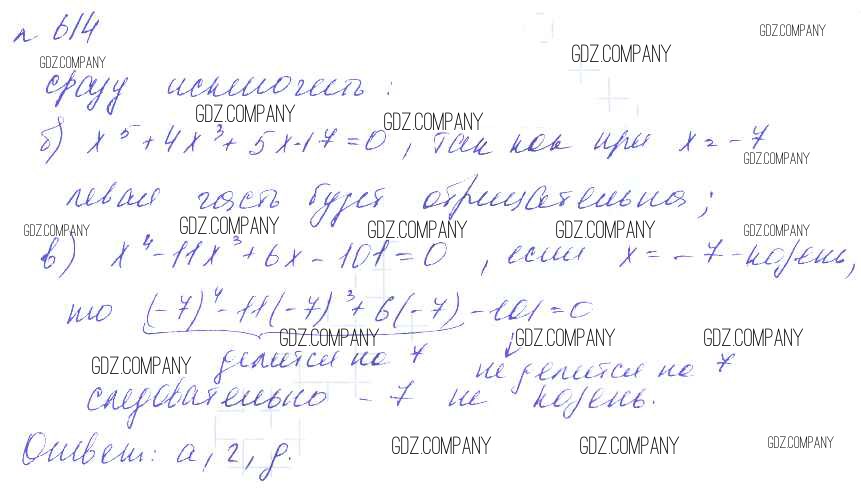 № 614
GDZ.COMPANY GDZ.COMPANY GDZ.COMPANY
сразу исключить:
GDZ.COMPANY GDZ.COMPANY
б) x⁵ + 4x³ + 5x - 17 = 0, так как при x = -7
GDZ.COMPANY
левая часть будет отрицательна;
GDZ.COMPANY GDZ.COMPANY GDZ.COMPANY GDZ.COMPANY GDZ.COMPANY
в) x⁴ - 11x³ + 6x - 101 = 0, если x = -7 - корень,
то (-7)⁴ - 11(-7)³ + 6(-7) - 101 = 0
GDZ.COMPANY GDZ.COMPANY GDZ.COMPANY GDZ.COMPANY
делится на 7 не делится на 7
следовательно -7 не корень.
Ответ: а, г, д.
GDZ.COMPANY GDZ.COMPANY GDZ.COMPANY